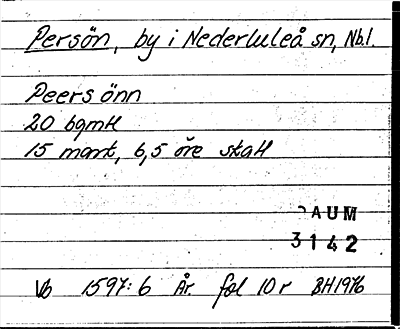 Persön, by i Nederluleå sn, Nb.l.
Peers önn
20 bgmtl
15 mark, 6,5 öre skatt
DAUM
3142
Vb 1597:6 År fol 10 r BH1976